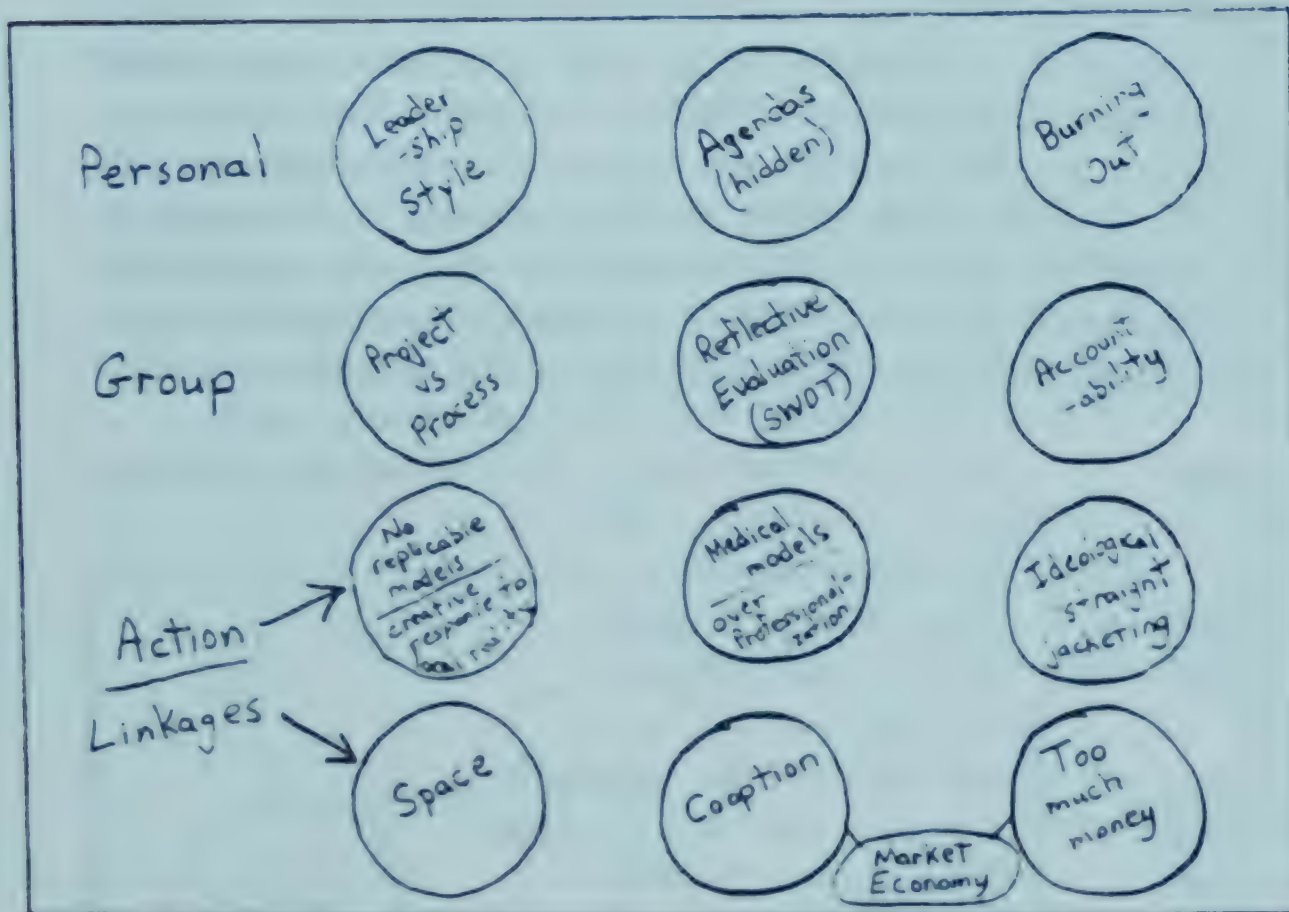 Personal
Leader
-ship
style
Agendas
(hidden)
Burning
Out
Group
Project
vs
Process
Reflective
Evaluation
(SWOT)
Account
-ability
Action
No
replicable
models
creative
response to
Medical
models
over
Professionali-
zation
Ideological
straight
jacketing
Linkages
Space
Cooption
Too
much
money
Market
Economy